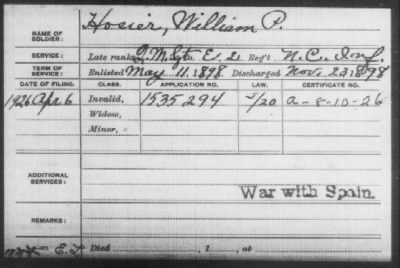 NAME OF SOLDIER: Hosier, William P.
SERVICE: Late rank, Q.M. Sgt. Co. E, 2 Reg't N.C. Inf.
TERM OF SERVICE: Enlisted May 11, 1898, Discharged Nov. 23 1898
DATE OF FILING. CLASS. APPLICATION NO. LAW. CERTIFICATE NO.
1926 Apr 6 Invalid, 1535294 5/20 a-8-10-26
Widow,
Minor,
ADDITIONAL SERVICES:
War with Spain.
REMARKS:
Died , 1 , at